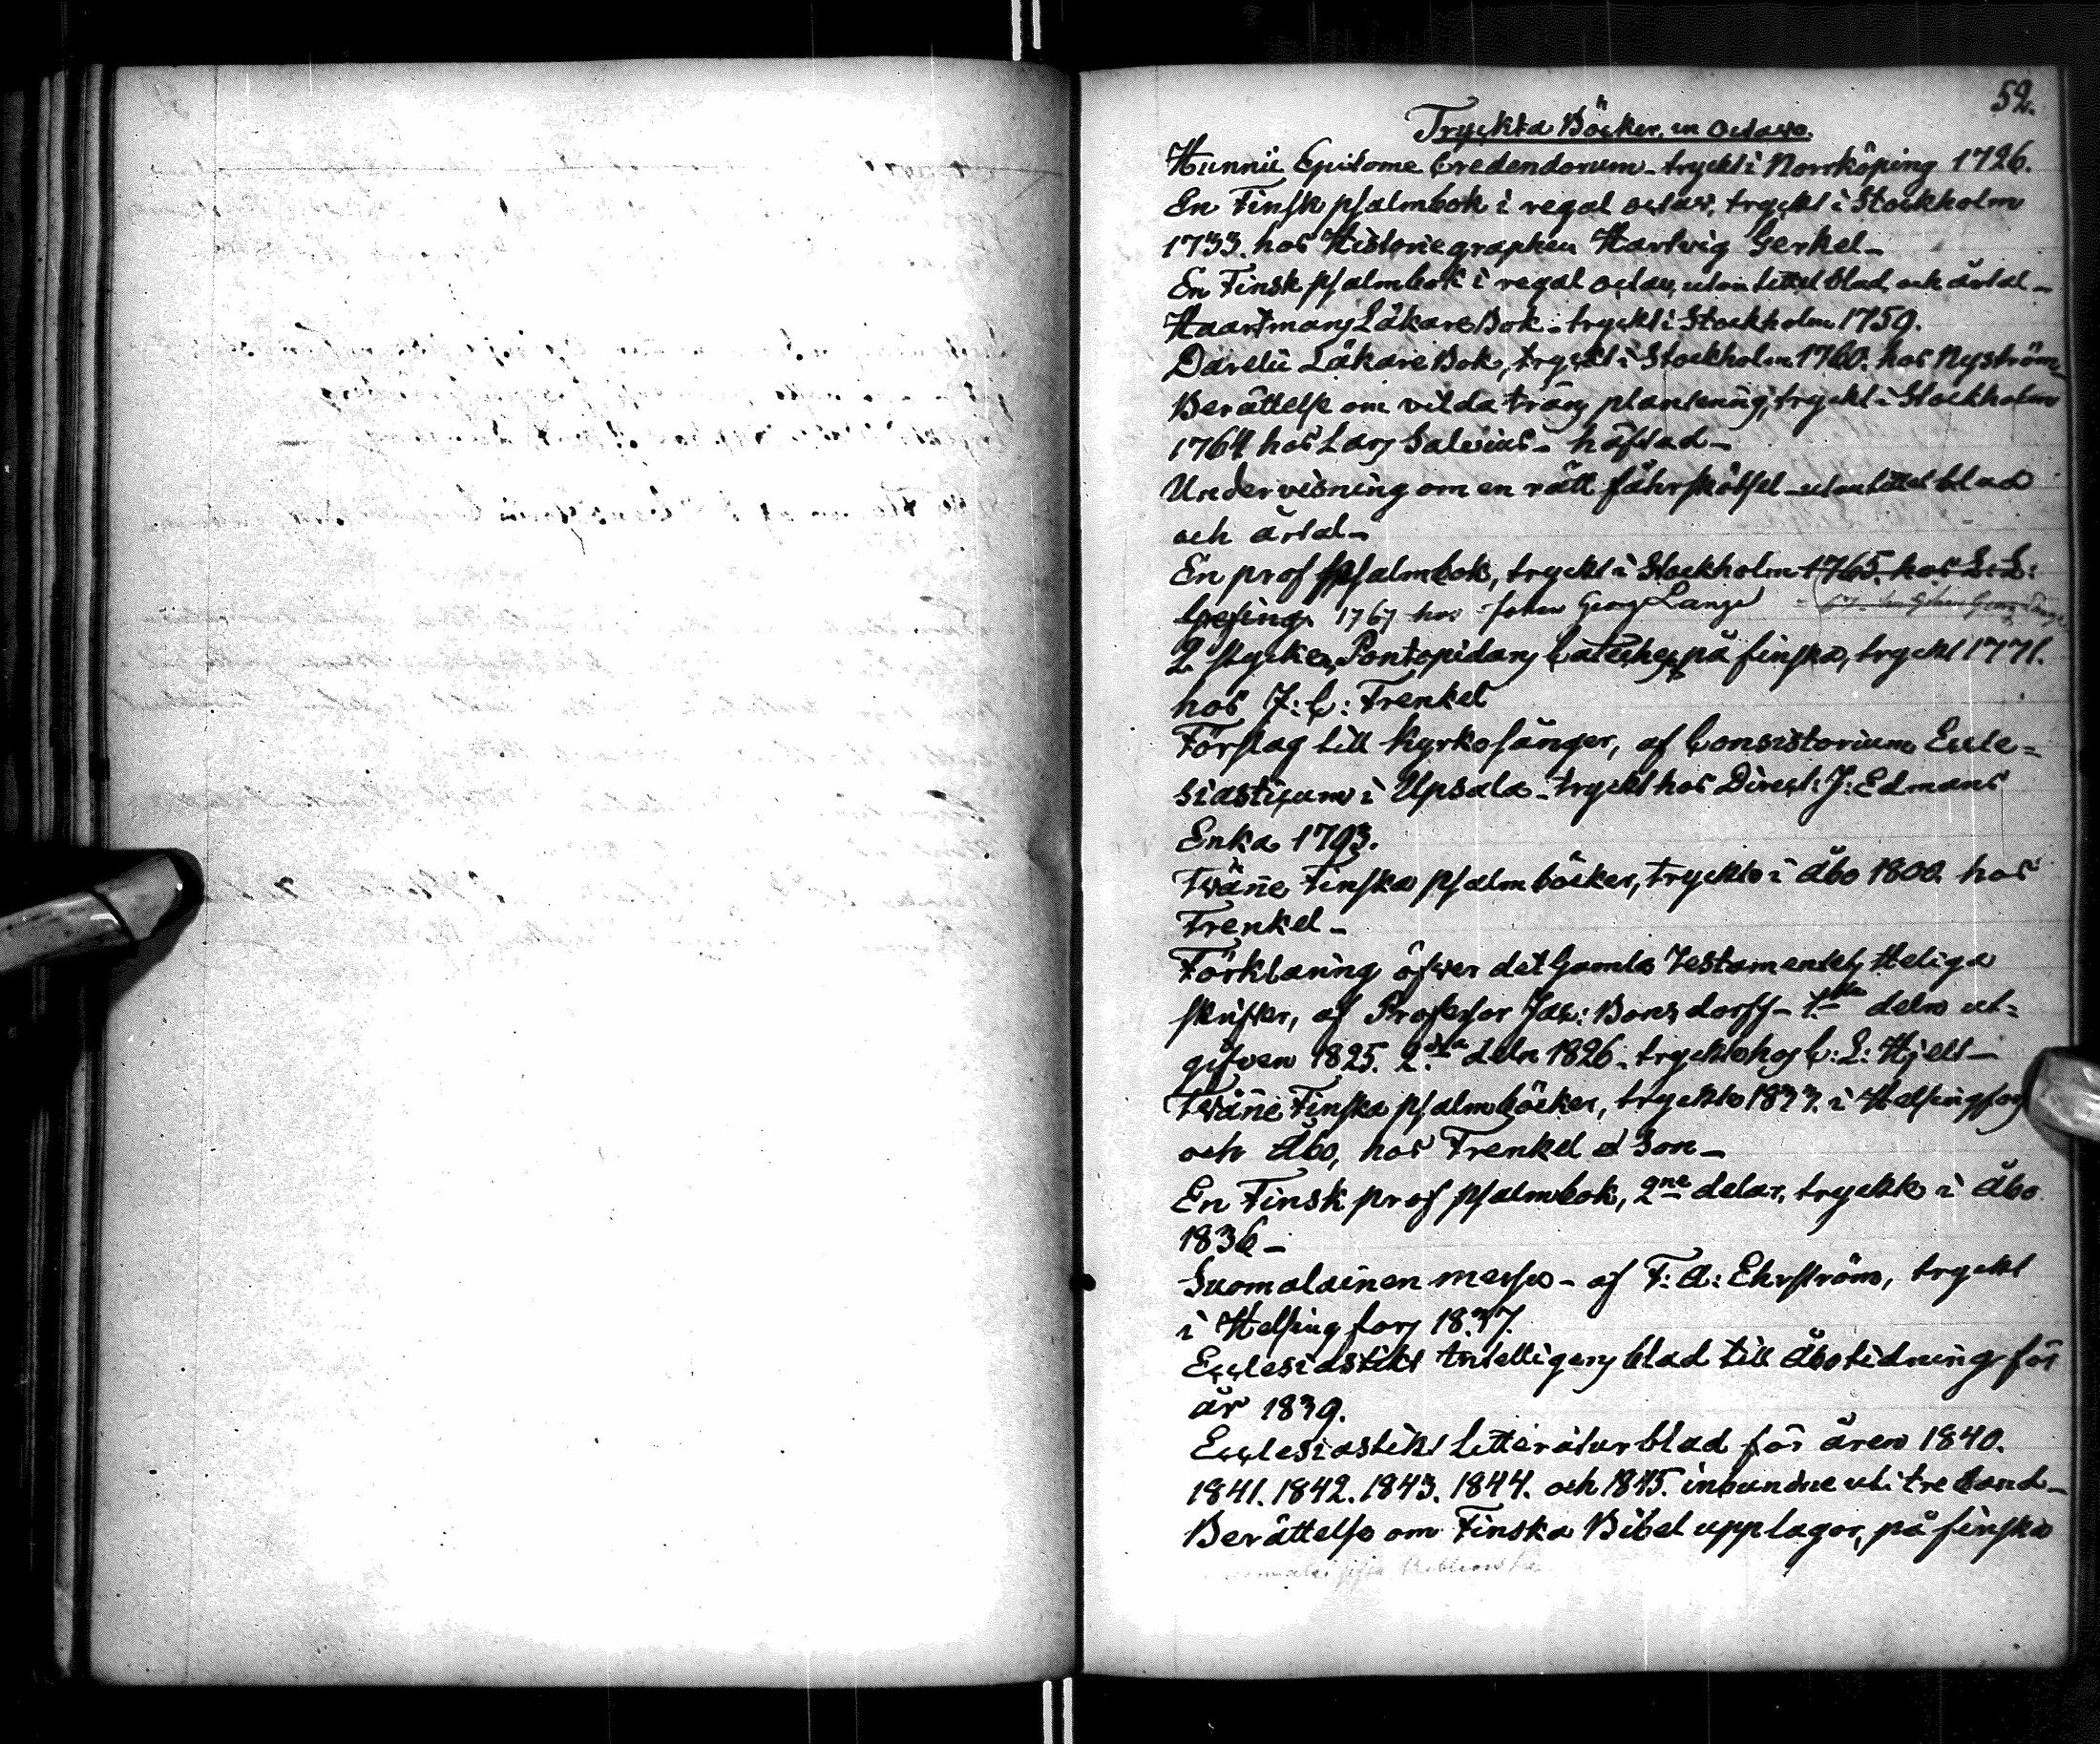 52.
Tryckta Böcker, in Octavo.
Hunnii Epitome Credendorum - tryckt i Norrköping 1726.
En Finsk psalmbok i regal octav, tryckt i Stockholm
1733. hos Historiegraphen Hartvig Gerkel -
En Finsk psalmbok i regal octav, utan tittel blad och årtal -
Haartmans Läkare Bok - tryckt i Stockholm 1759.
Darelii Läkare Bok, tryckt i Stockholm 1760. hos Nyström
Berättelse om vilda träns plantering, tryckt i Stockholm
1764 hos Lars Salvius - häftad -
Undervisning om en rätt fåhrskötsel - utan tittel blad
och årtal -
En prof psalmbok, tryckt i Stockholm 1765. hos L: L:
Grefing. 1767 hos Johan Georg Lange
2 stycken Pontopidans Catechez på finska, tryckt 1771.
hos J: C: Frenkel
Förslag till Kyrkosånger, af Consistorium Eccle=
siasticum i Upsala - tryckt hos Direct: J: Edmans
Enka 1793.
Twänne Finska psalmböcker, tryckte i Åbo 1800. hos
Frenkel -
Förklaring öfwer det Gamla Testamentets Heliga
skrifter, af Professor Jac: Bonsdorff - 1.sta delen ut=
gifven 1825. 2.dra deln 1826 - tryckte hos C: L: Hjelt -
Twänne Finska psalmböcker, tryckte 1833. i Helsingfors
och Åbo, hos Frenkel et Son -
En Finsk prof psalmbok, 2ne delar, tryckte i Åbo
1836 -
Suomalainen messu - af F: A: Ehrström, tryckt
i Helsingfors 1837.
Ecclesiastikt Intelligens blad till Åbo tidning för
år 1839.
Ecclesiastikt Litteratur blad för åren 1840.
1841. 1842. 1843. 1844. och 1845. inbundne uti tre band -
Berättelse om Finska Bibel upplagor, på finska